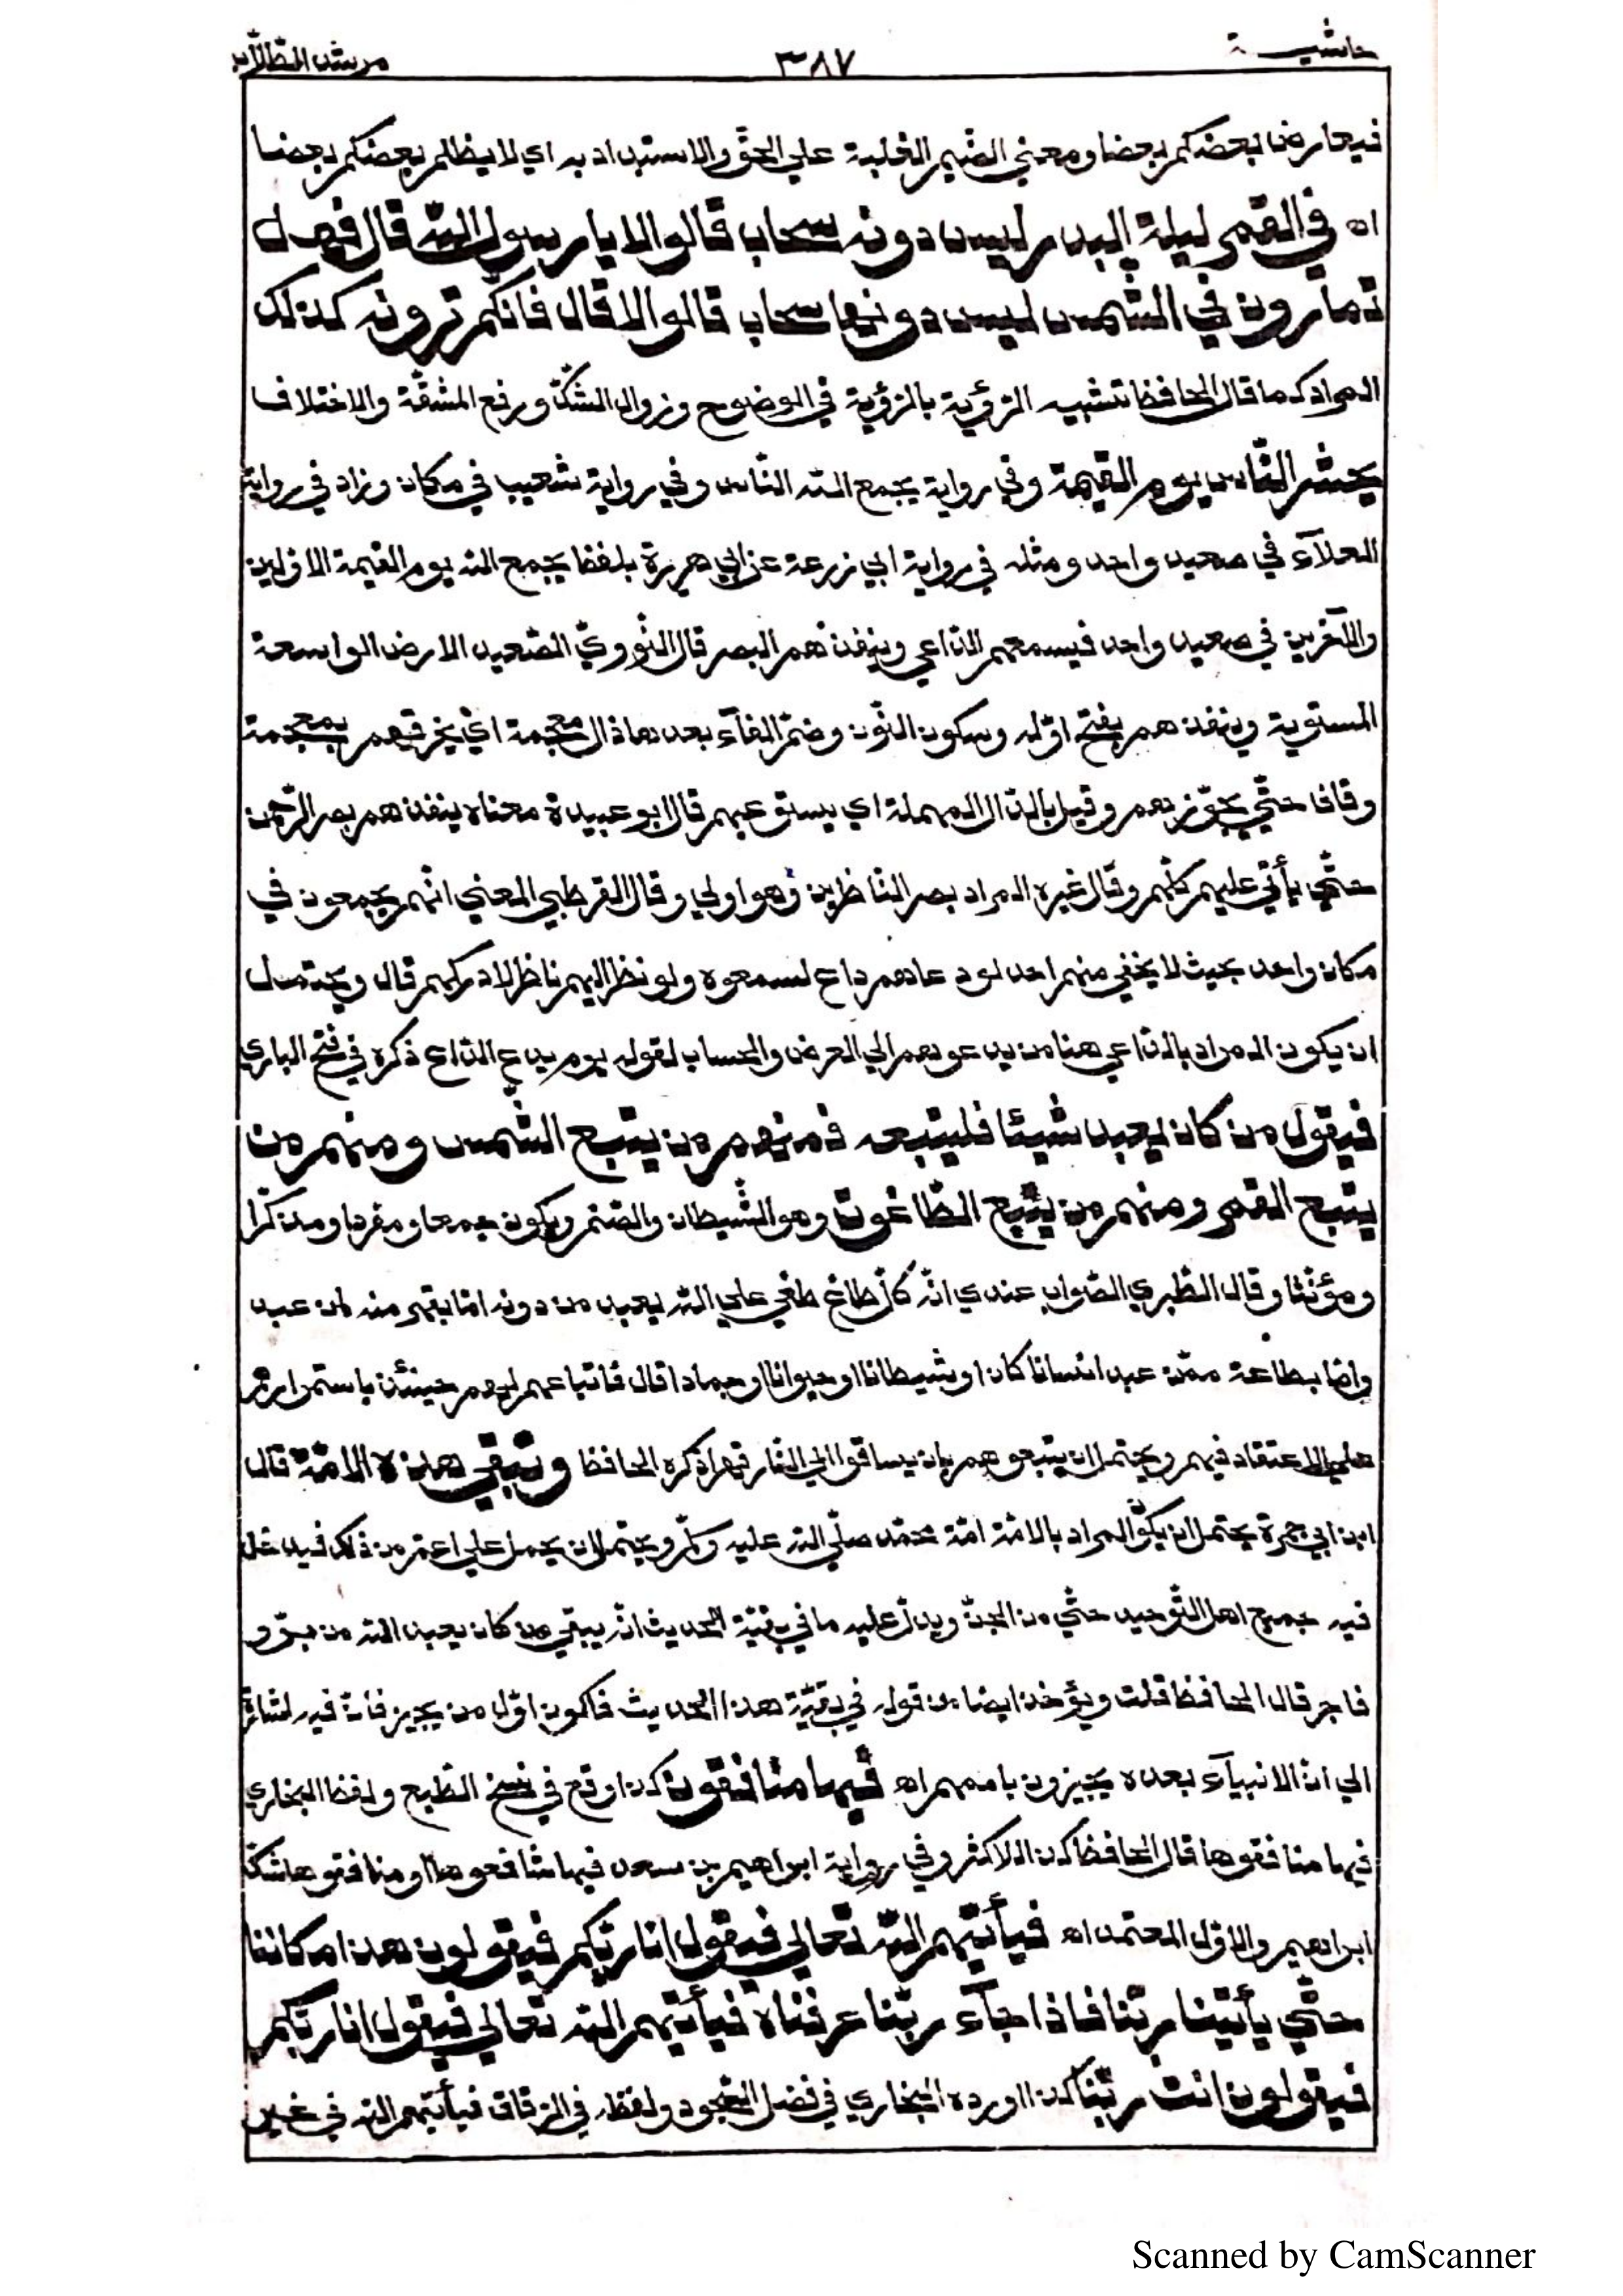 حاشيـــة ٣٨٧ مرشد الطلاب
فيعارض بعضكم بعضا ومعنى الضيم الغلبة على الحق والاستبداد به اي لا يظلم بعضكم بعضا
اه في القمر ليلة البدر ليس دونه سحاب قالوا لا يا رسول الله قال فهل
تمارون في الشمس ليس دونها سحاب قالوا لا قال فانكم ترونه كذلك
المراد كما قال الحافظ تشبيه الرؤية بالرؤية في الوضوح وزوال الشك ورفع المشقة والاختلاف
يحشر الناس يوم القيمة وفي رواية يجمع الله الناس وفي رواية شعيب في مكان وزاد في رواية
العلآء في صعيد واحد ومثله في رواية ابي زرعة عن ابي هريرة بلفظ يجمع الله يوم القيمة الاولين
والآخرين في صعيد واحد فيسمعهم الداعي وينفذهم البصر قال النووي الصعيد الارض الواسعة
المستوية وينفذهم بفتح اوله وسكون النون وضم الفآء بعدها ذال معجمة اي يخرقهم بمعجمة
وقاف حتى يجوزهم وقيل بالدال المهملة اي يستوعبهم قال ابو عبيدة معناه ينفذهم بصر الرحمن
حتى يأتي عليهم كلهم وقال غيره المراد بصر الناظرين وهو اولى وقال القرطبي المعنى انهم يجمعون في
مكان واحد بحيث لا يخفى منهم احد لو دعاهم داع لسمعوه ولو نظر اليهم ناظر لادركهم قال ويحتمل
ان يكون المراد بالداعي هنا من يدعوهم الى العرض والحساب لقوله يوم يدع الداع ذكره في فتح الباري
فيقول من كان يعبد شيئا فليتبعه فمنهم من يتبع الشمس ومنهم من
يتبع القمر ومنهم من يتبع الطاغوت وهو الشيطان والصنم ويكون جمعا ومفردا ومذكرا
ومؤنثا وقال الطبري الصواب عندي انه كل طاغ طغى على الله يعبد من دونه اما بقهر منه لمن عبد
واما بطاعة ممن عبد انسانا كان او شيطانا او حيوانا او جمادا قال فاتباعهم لهم حينئذ باستمرارهم
على الاعتقاد فيهم ويحتمل ان يتبعوهم بان يساقوا الى النار قهرا ذكره الحافظ وتبقى هذه الامة قال
ابن ابي جمرة يحتمل ان يكون المراد بالامة امة محمد صلى الله عليه وسلم ويحتمل ان يحمل على اعم من ذلك فيدخل
فيه جميع اهل التوحيد حتى من الجن ويدل عليه ما في بقية الحديث انه يبقى من كان يعبد الله من بر و
فاجر قال الحافظ قلت ويؤخذ ايضا من قوله في بقية هذا الحديث فاكون اول من يجيز فان فيه اشارة
الى ان الانبيآء بعده يجيزون باممهم اه فيها منافقون كذا وقع في نسخ الطبع ولفظ البخاري
فيها منافقوها قال الحافظ كذا للاكثر وفي رواية ابراهيم بن سعد فيها شافعوها او منافقوها شك
ابراهيم والاول المعتمد اه فيأتيهم الله تعالى فيقول انا ربكم فيقولون هذا مكاننا
حتى يأتينا ربنا فاذا جآء ربنا عرفناه فيأتيهم الله تعالى فيقول انا ربكم
فيقولون انت ربنا كذا اورده البخاري في فضل السجود ولفظه في الرقاق فيأتيهم الله في غير
Scanned by CamScanner